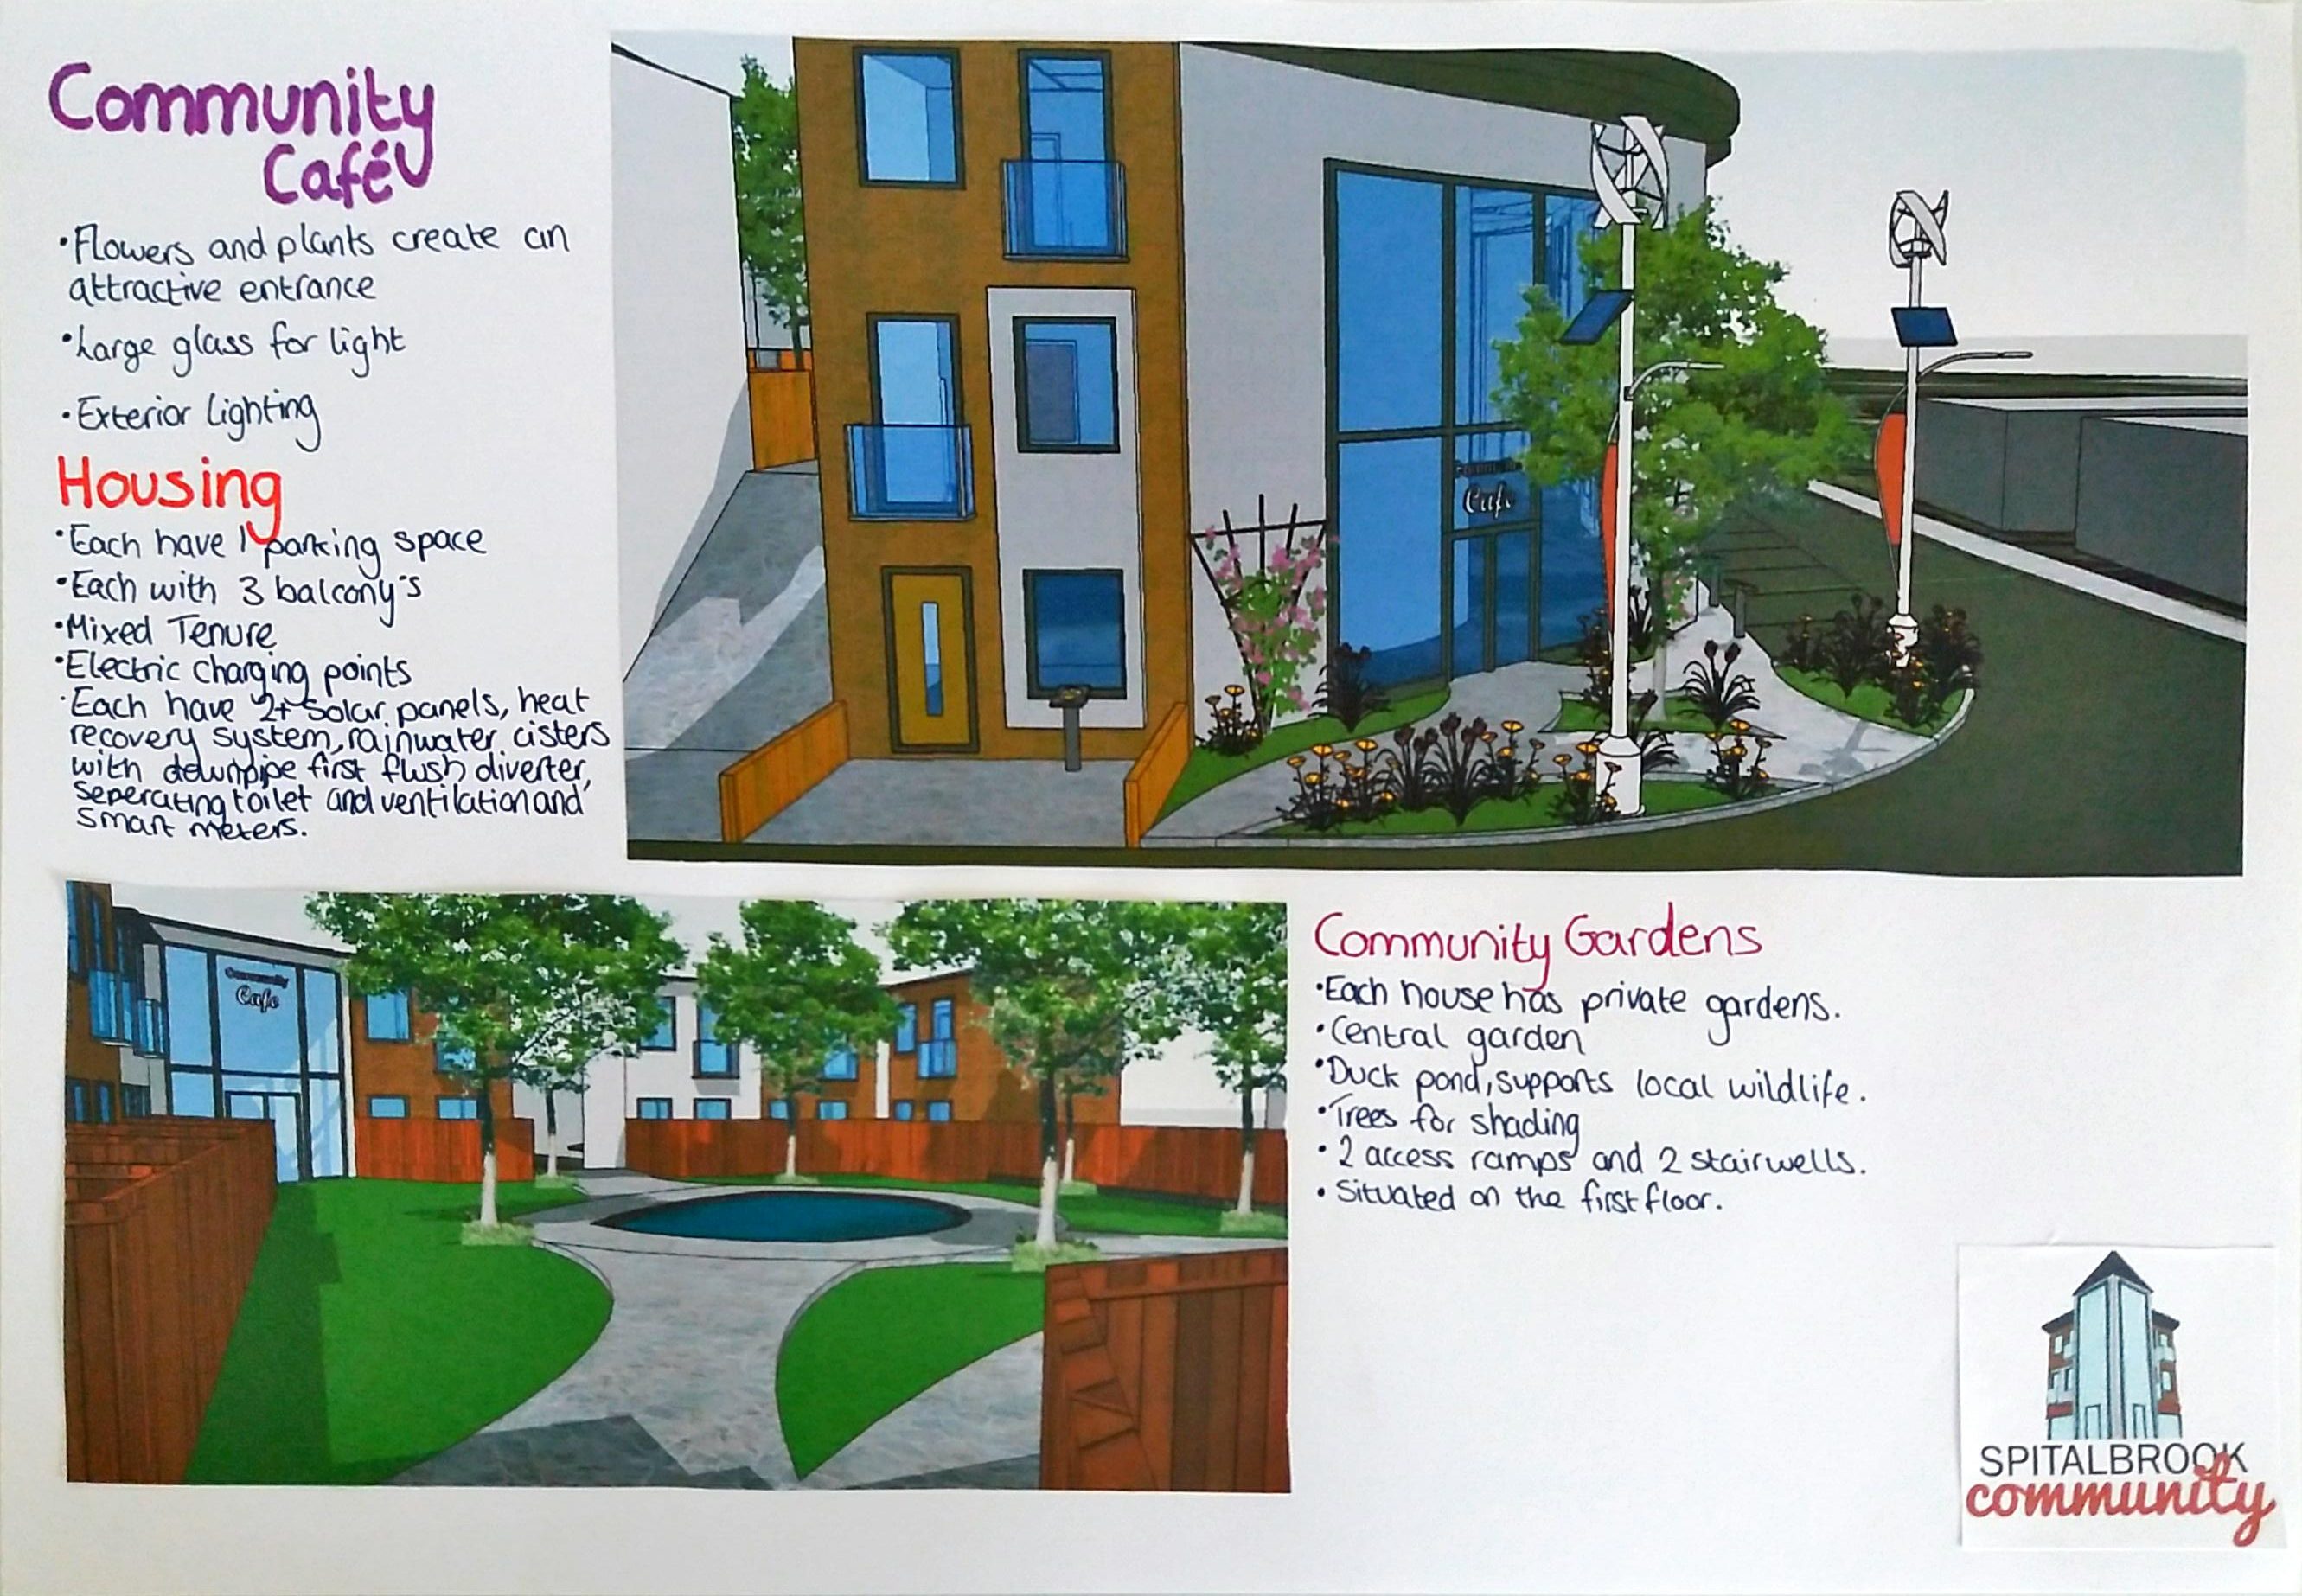 Community
Café
•Flowers and plants create an
attractive entrance
•Large glass for light
•Exterior Lighting
Housing
•Each have 1 parking space
•Each with 3 balcony's
•Mixed Tenure
•Electric charging points
•Each have 2+ Solar panels, heat
recovery system, rainwater cisters
with downpipe first flush diverter,
seperating toilet and ventilation and
smart meters.
Cafe
Community
Cafe
Community Gardens
•Each house has private gardens.
•Central garden
•Duck pond, supports local wildlife.
•Trees for shading
•2 access ramps and 2 stairwells.
•Situated on the first floor.
SPITALBROOK
community